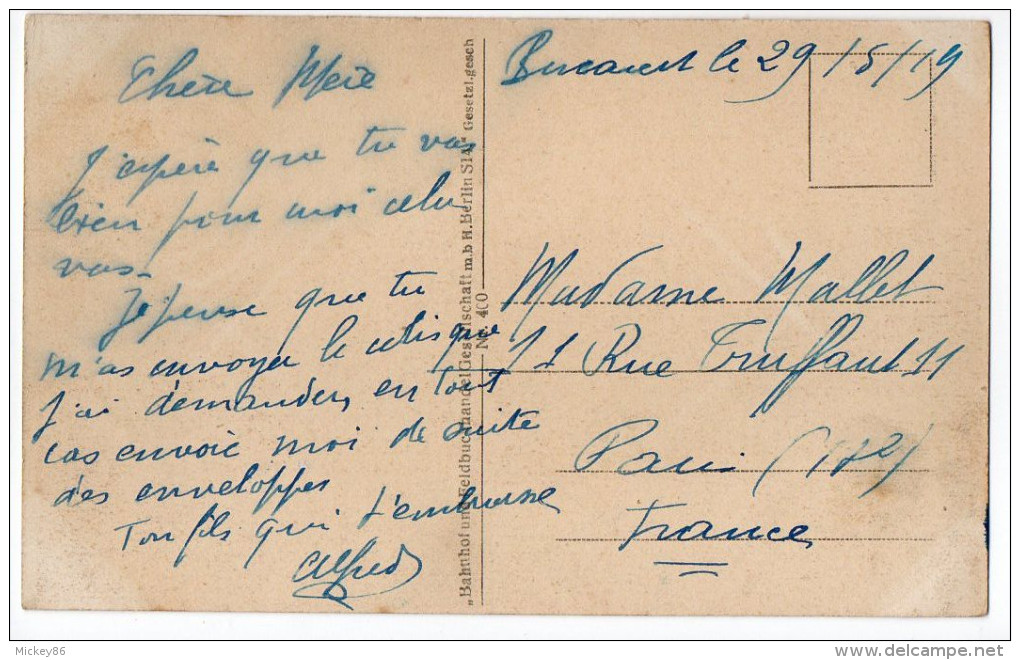 Bucarest le 29/5/19
Chère Mère
J'espère que tu vas
bien pour moi cela
vas.
Je pense que tu
m'as envoyer le colis que
j'ai demander, en tout
cas envoie moi de suite
des enveloppes
Ton fils qui t'embrasse
Alfred
„Bahnhof und Feldbuchhandel Gesellschaft m.b H. Berlin S14“ Gesetzl.gesch
Nr. 400
Madame Mallet
11 Rue Truffaut 11
Paris (17e)
France
Mickey86
www.delcampe.net